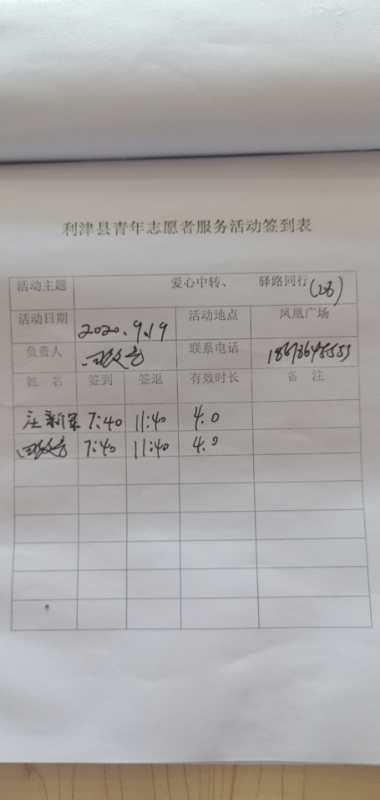 利津县青年志愿者服务活动签到表
活动主题 爱心中转、 驿路同行(28)
活动日期 2020.9.19 活动地点 凤凰广场
负责人 联系电话
姓 名 签到 签退 有效时长 备 注
庄新军 7:40 11:40 4.0
7:40 11:40 4.0